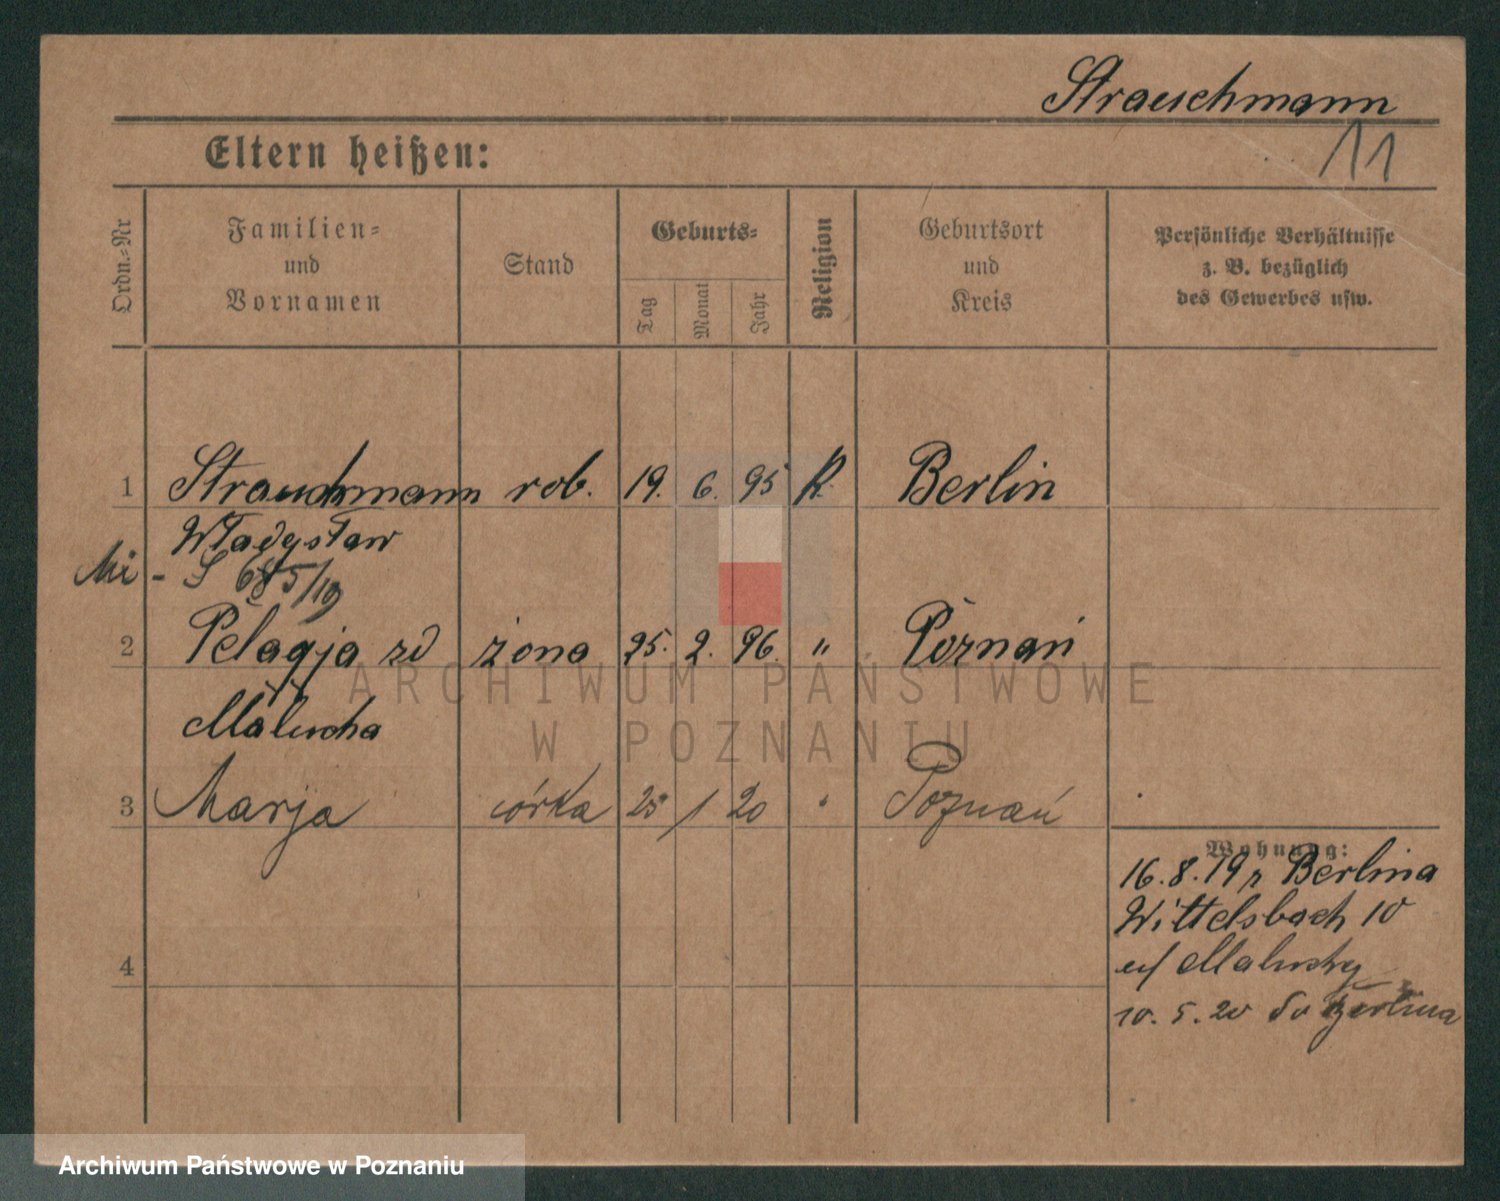 Strauchmann
11
Eltern heißen:
Ordn.-Nr
Familien-
und
Vornamen
Stand
Geburts-
Tag
Monat
Jahr
Religion
Geburtsort
und
Kreis
Persönliche Verhältnisse
z. B. bezüglich
des Gewerbes usw.
1 Strauchmann rob. 19. 6. 95 K. Berlin
Władysław
- S 685/19
2 Pelagja zd żona 25. 2. 96. " Poznań
Malucha
3 Marja córka 25 1 20 " Poznań
Wohnung:
16.8.19 z Berlina
Wittelsbach 10
Maluchy
10.5.20 do Berlina
4
ARCHIWUM PAŃSTWOWE
W POZNANIU
Archiwum Państwowe w Poznaniu